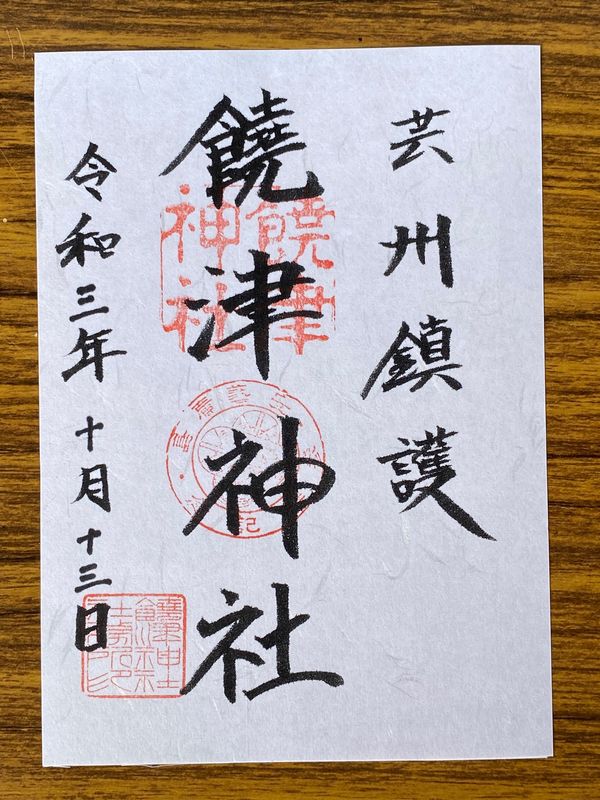 芸州鎮護
饒津神社
饒津
神社
令和三年十月十三日